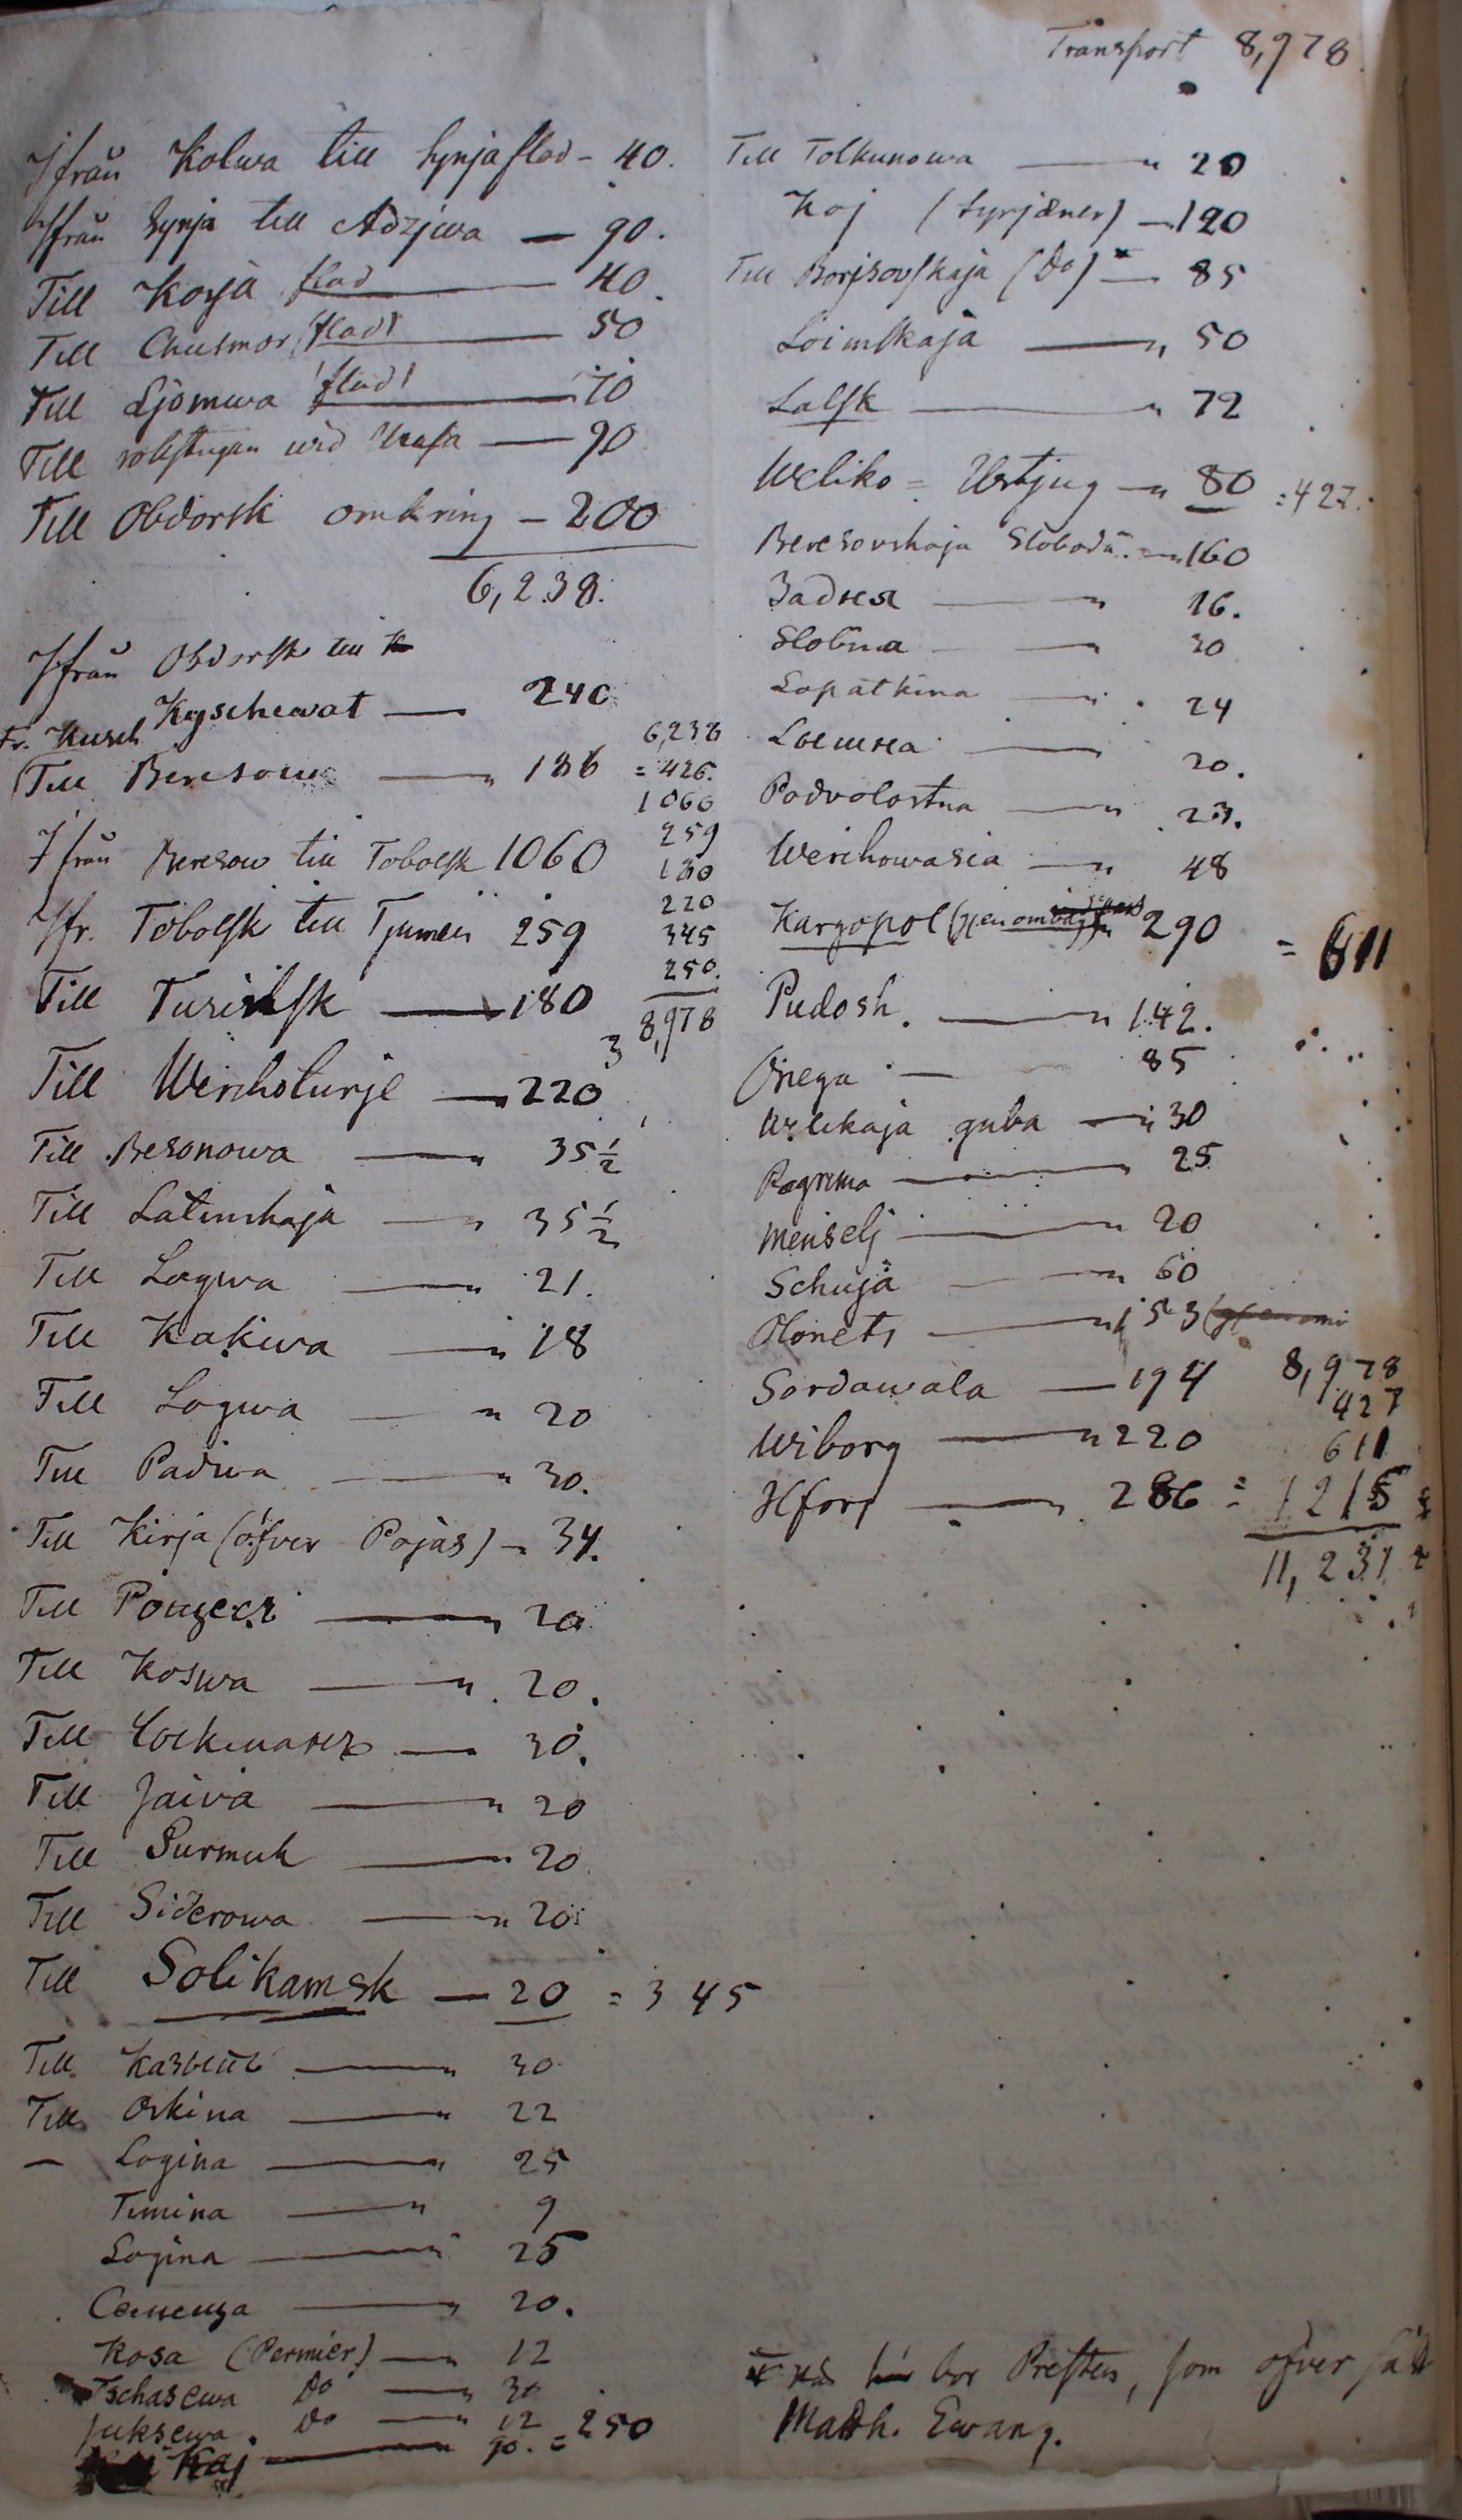 Transport 8,978
Ifrån Kolwa till Synja flod - 40.
Ifrån Synja till Adzjwa — 90.
Till Korja flod — 40.
Till Chusmor (flod) — 50
Till Ljömwa (flod) — 70
Till wid Ussa — 90
Till Obdorsk omkring — 200
6,238.
Ifrån Obdorsk till
Kyschewat — 240
Fr. Kusch
Till Beresow — 186 = 426.
Ifrån Beresow till Tobolsk 1060
Ifr. Tobolsk till Tjumen 259
Till Turinsk — 180
Till Werchoturje — 220
6,238
1060
259
180
220
345
250.
8,978
3
Till Besonowa — 35 1/2
Till Latinskaja — 35 1/2
Till Logwa — 21.
Till Kakwa — 18
Till Logwa — 20
Till Padwa — 30.
Till Kirja (öfver Pojas) — 34.
Till — 20
Till Koswa — 20.
Till — 30.
Till Jaiva — 20
Till Surmuk — 20
Till Siderowa — 20
Till Solikamsk — 20 = 345
Till — 30
Till Oskina — 22
— Logina — 25
Timina — 9
Logina — 25
— 20.
Kosa (Permier) — 12
Tschasewa Do — 30
Juksewa. Do — 12
Kaj — 90. = 250
Till Tolkunowa — 20
Koj (Syrjäner) — 120
Till Borjsovskaja (Do)* — 85
Loimskaja — 50
Lalsk — 72
Weliko = Ustjug — 80 = 427.
Beresovskaja Sloboda. — 160
Задняя — 16.
Slobina — 30
Lopatkina — 24
— 20.
Podvolostna — 23.
Werchowasia — 48
Kargopol 290 = 611
Pudosh. — 142.
Onega — 85
Welikaja guba — 30
— 25
Menselj — 20
Schuja — 60
Olonets — 153
Sordawala — 194
Wiborg — 220
Hfors — 286 = 1215
8,978
427
611
1215
11,231
bor Presten, som öfversätt
Matth. Evang.